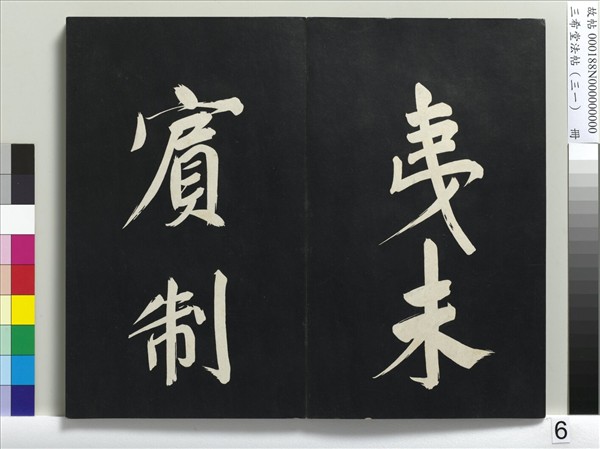 夷未
賓制
故帖 000188N000000000
三希堂法帖(三一) 冊
6